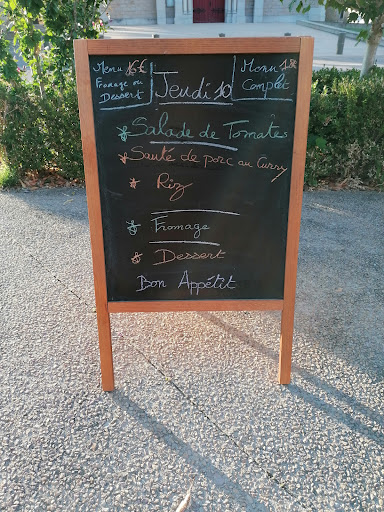 Menu 16€
Fromage ou
Dessert
Jeudi 10
Menu 18€
Complet
Salade de Tomates
Sauté de porc au Curry
Riz
Fromage
Dessert
Bon Appétit